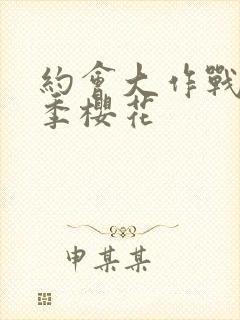 約會大作戰
季櫻花
申某某